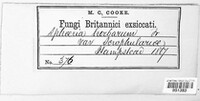 M. C. COOKE.
Fungi Britannici exsiccati.
Sphæria herbarum
var Scrophulariæ
Hampstead 1867
No. 376